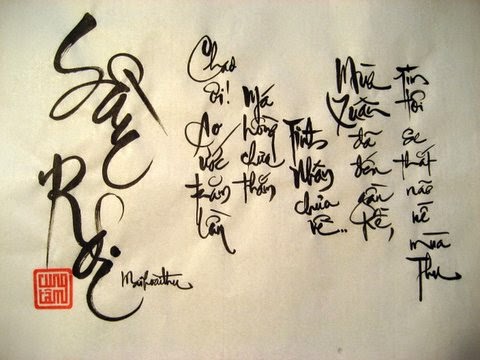 Sắc
Rơi
Chao ôi! Ao ước trăm lần
Má hồng chưa thắm
Tình Nhân chưa về...
Mùa Xuân đã đến gần kề,
Tim tôi se thắt não nề mùa Thu
Maihoaithu
cung
tâm